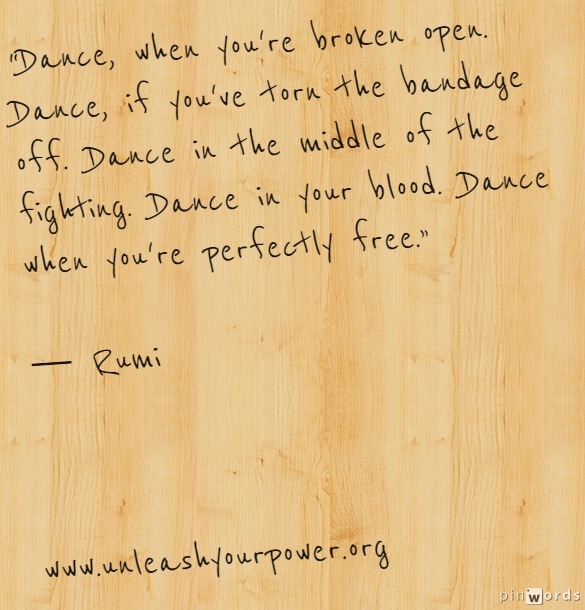 "Dance, when you're broken open.
Dance, if you've torn the bandage
off. Dance in the middle of the
fighting. Dance in your blood. Dance
when you're perfectly free."
— Rumi
www.unleashyourpower.org
pinwords